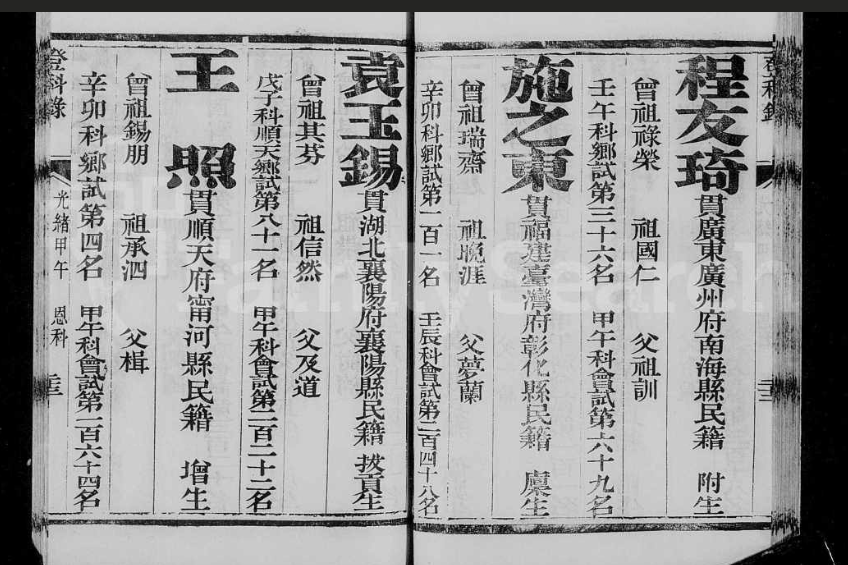 登科錄
程友琦貫廣東廣州府南海縣民籍 附生
曾祖祿榮 祖國仁 父祖訓
壬午科鄉試第三十六名 甲午科會試第六十九名
施之東貫福建臺灣府彰化縣民籍 廩生
曾祖瑞齋 祖晚涯 父夢蘭
辛卯科鄉試第一百一名 壬辰科會試第二百四十八名
袁玉錫貫湖北襄陽府襄陽縣民籍 拔貢生
曾祖其芬 祖信然 父及道
戊子科順天鄉試第八十一名 甲午科會試第二百二十二名
王照貫順天府甯河縣民籍 增生
曾祖錫朋 祖承泗 父楫
辛卯科鄉試第四名 甲午科會試第一百六十四名
登科錄 光緒甲午 恩科
FamilySearch